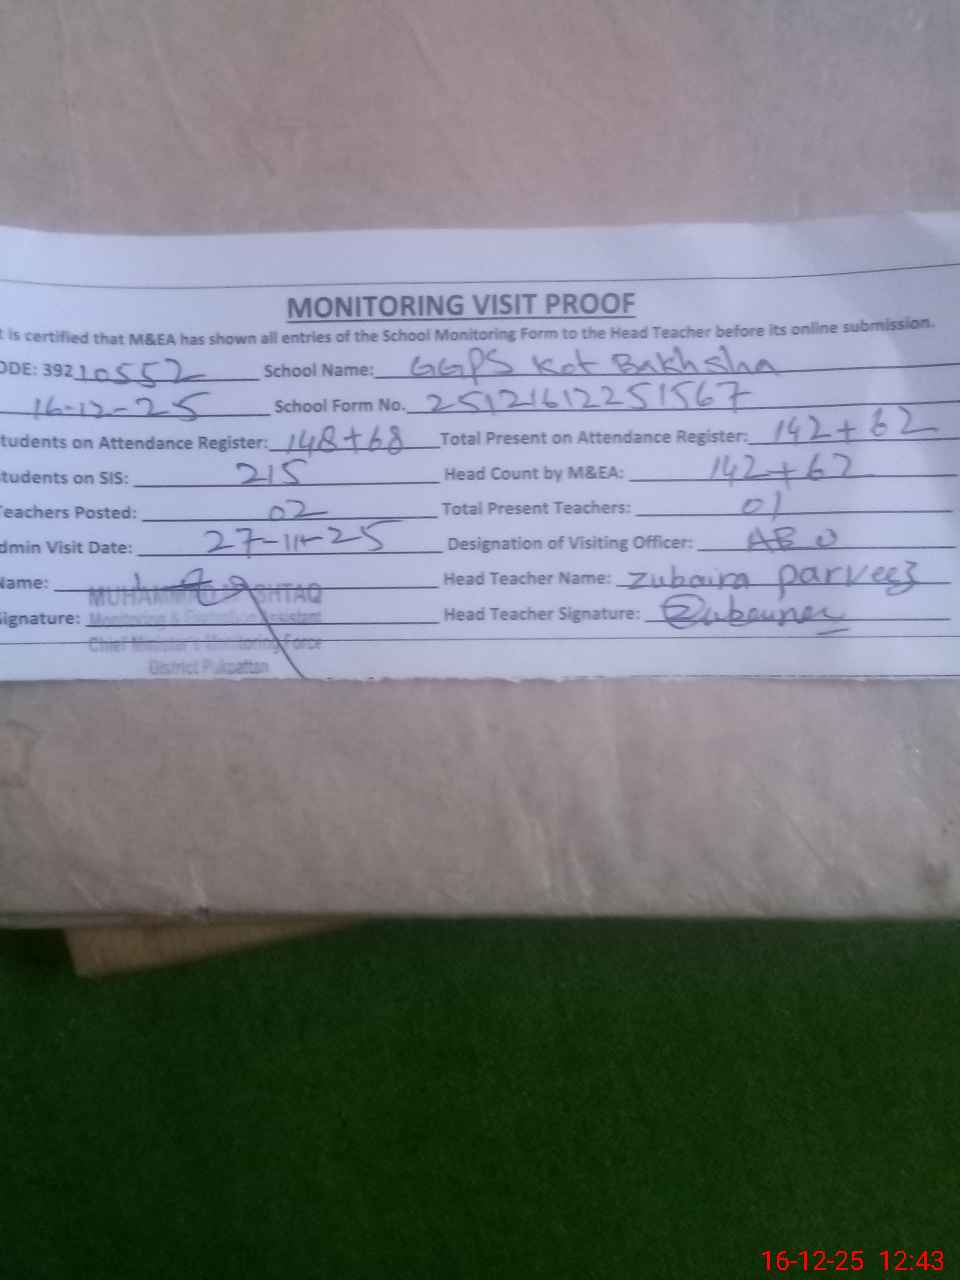 MONITORING VISIT PROOF
t is certified that M&EA has shown all entries of the School Monitoring Form to the Head Teacher before its online submission.
ODE: 39210552 School Name: GGPS Kot Bakhsha
16-12-25 School Form No. 25121612251567
tudents on Attendance Register: 148+68 Total Present on Attendance Register: 142+62
tudents on SIS: 215 Head Count by M&EA: 142+62
eachers Posted: 02 Total Present Teachers: 01
dmin Visit Date: 27-11-25 Designation of Visiting Officer: AEO
Name: Head Teacher Name: Zubaira parveez
MUHAMMAD ISHTAQ
ignature: Head Teacher Signature:
Monitoring & Evaluation Assistant
Chief Minister's Monitoring Force
District Pakpattan
16-12-25 12:43